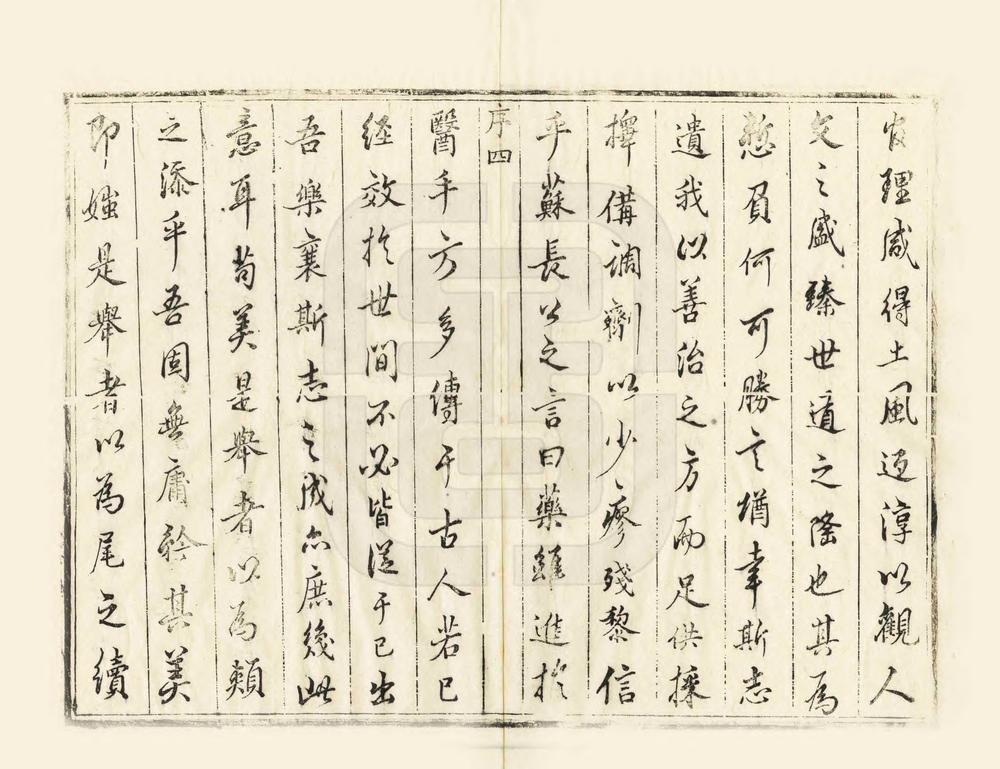 理咸得土風迎淳以觀人
文之盛臻世道之隆也其為
慙負何可勝言猶幸斯志
遺我以善治之方而足供採
擇備調劑以少瘳殘黎信
乎蘇長公之言曰藥雖進於
序四
醫手方多傳于古人若已
經效於世間不必皆從于已出
吾樂襄斯志之成亦庶幾此
意耳苟美是舉者以為頰
之添乎吾固無庸矜其美
即媸是舉者以為尾之續